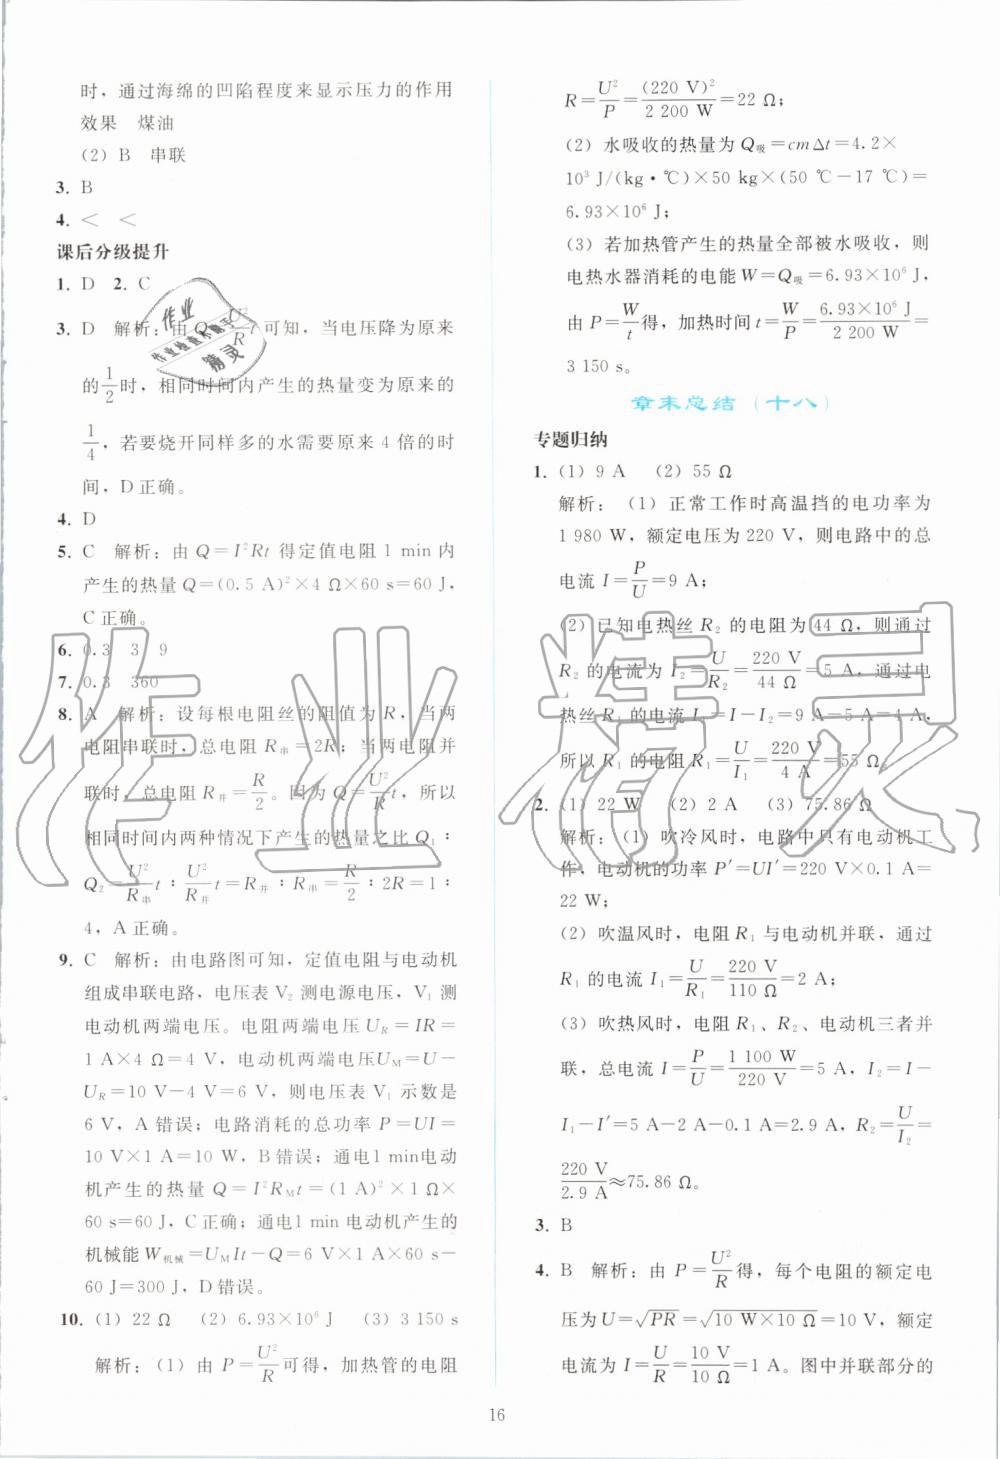 时，通过海绵的凹陷程度来显示压力的作用
效果　煤油
（2）B　串联
3. B
4. ＜　＜
课后分级提升
1. D　2. C
3. D　解析：由 Q＝U²/R t 可知，当电压降为原来
的1/2时，相同时间内产生的热量变为原来的
1/4，若要烧开同样多的水需要原来 4 倍的时
间，D 正确。
4. D
5. C　解析：由 Q＝I²Rt 得定值电阻 1 min 内
产生的热量 Q＝(0.5 A)²×4 Ω×60 s＝60 J，
C 正确。
6. 0.3　3　9
7. 0.3　360
8. A　解析：设每根电阻丝的阻值为 R，当两
电阻串联时，总电阻 R串＝2R；当两电阻并
联时，总电阻 R并＝R/2。因为 Q＝U²/R t，所以
相同时间内两种情况下产生的热量之比 Q₁∶
Q₂＝U²/R串 t∶U²/R并 t＝R并∶R串＝R/2∶2R＝1∶
4，A 正确。
9. C　解析：由电路图可知，定值电阻与电动机
组成串联电路，电压表 V₂ 测电源电压，V₁ 测
电动机两端电压。电阻两端电压 U_R＝IR＝
1 A×4 Ω＝4 V，电动机两端电压U_M＝U－
U_R＝10 V－4 V＝6 V，则电压表 V₁ 示数是
6 V，A 错误；电路消耗的总功率 P＝UI＝
10 V×1 A＝10 W，B 错误；通电1 min电动
机产生的热量 Q＝I²R_Mt＝(1 A)²×1 Ω×
60 s＝60 J，C 正确；通电1 min 电动机产生的
机械能 W机械＝U_MIt－Q＝6 V×1 A×60 s－
60 J＝300 J，D 错误。
10. （1）22 Ω　（2）6.93×10⁶ J　（3）3 150 s
解析：（1）由 P＝U²/R可得，加热管的电阻
R＝U²/P＝(220 V)²/2 200 W＝22 Ω；
（2）水吸收的热量为 Q吸＝cmΔt＝4.2×
10³ J/(kg·℃)×50 kg×(50 ℃－17 ℃)＝
6.93×10⁶ J；
（3）若加热管产生的热量全部被水吸收，则
电热水器消耗的电能 W＝Q吸＝6.93×10⁶ J，
由 P＝W/t得，加热时间 t＝W/P＝6.93×10⁶ J/2 200 W＝
3 150 s。
章末总结（十八）
专题归纳
1. （1）9 A　（2）55 Ω
解析：（1）正常工作时高温挡的电功率为
1 980 W，额定电压为 220 V，则电路中的总
电流 I＝P/U＝9 A；
（2）已知电热丝 R₂ 的电阻为 44 Ω，则通过
R₂ 的电流为 I₂＝U/R₂＝220 V/44 Ω＝5 A，通过电
热丝 R₁ 的电流 I₁＝I－I₂＝9 A－5 A＝4 A，
所以 R₁ 的电阻 R₁＝U/I₁＝220 V/4 A＝55 Ω。
2. （1）22 W　（2）2 A　（3）75.86 Ω
解析：（1）吹冷风时，电路中只有电动机工
作，电动机的功率 P′＝UI′＝220 V×0.1 A＝
22 W；
（2）吹温风时，电阻 R₁ 与电动机并联，通过
R₁ 的电流 I₁＝U/R₁＝220 V/110 Ω＝2 A；
（3）吹热风时，电阻 R₁、R₂、电动机三者并
联，总电流 I＝P/U＝1 100 W/220 V＝5 A，I₂＝I－
I₁－I′＝5 A－2 A－0.1 A＝2.9 A，R₂＝U/I₂＝
220 V/2.9 A≈75.86 Ω。
3. B
4. B　解析：由 P＝U²/R得，每个电阻的额定电
压为U＝√PR＝√10 W×10 Ω＝10 V，额定
电流为 I＝U/R＝10 V/10 Ω＝1 A。图中并联部分的
16
作业
作业检查小助手
精灵
作业精灵